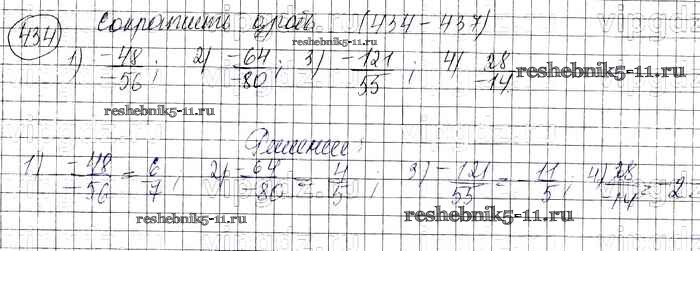 434 Сократить дробь (434-437)
1) -48/-56; 2) -64/-80; 3) -121/55; 4) 28/-14
reshebnik5-11.ru
reshebnik5-11.ru
reshebnik5-11.ru
Решение:
1) -48/-56 = 6/7; 2) -64/-80 = 4/5; 3) -121/55 = -11/5; 4) 28/-14 = -2.
reshebnik5-11.ru
reshebnik5-11.ru